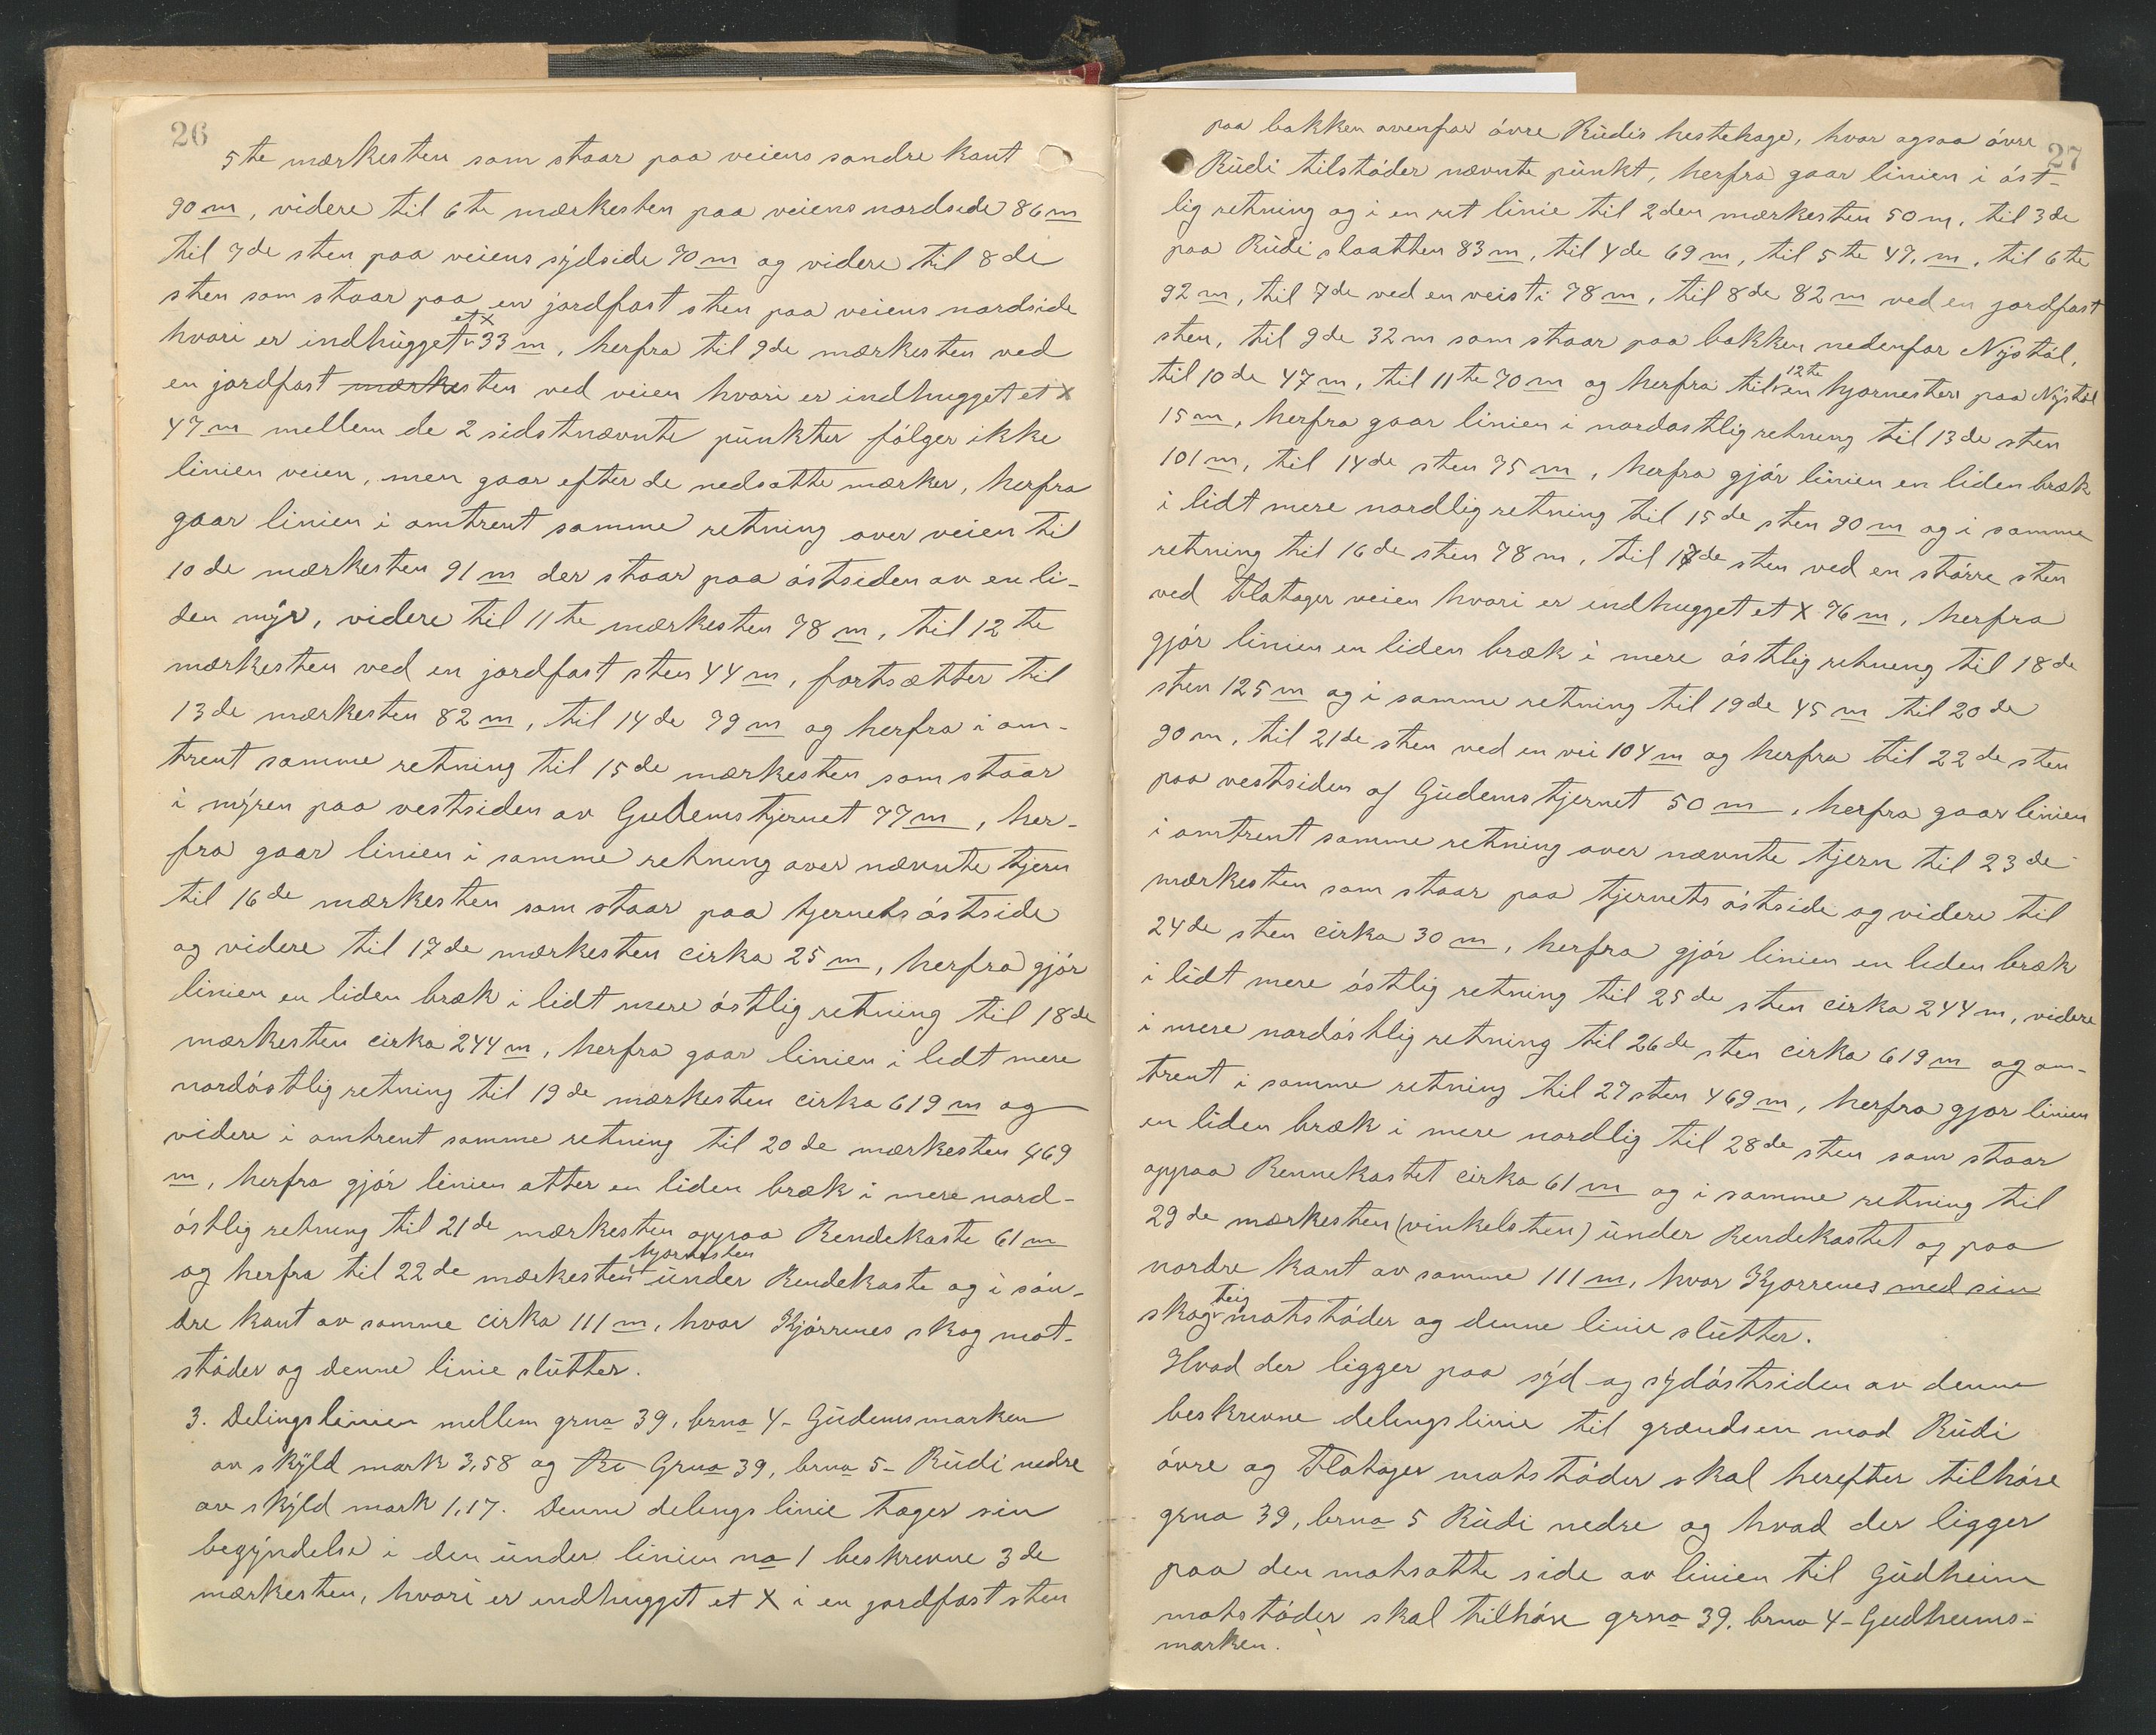 26
5te mærkesten som staar paa veiens søndre kant
90 m, videre til 6te mærkesten paa veiens nordside 86 m
til 7de sten paa veiens sydside 70 m og videre til 8de
sten som staar paa en jordfast sten paa veiens nordside
hvori er indhugget et x 33 m, herfra til 9de mærkesten ved
en jordfast mærkesten ved veien hvori er indhugget et x
47 m mellem de 2 sidstnævnte punkter følger ikke
linien veien, men gaar efter de nedsatte mærker, herfra
gaar linien i omtrent samme retning over veien til
10de mærkesten 91 m der staar paa østsiden av en li-
den myr, videre til 11te mærkesten 78 m, til 12te
mærkesten ved en jordfast sten 44 m, fortsætter til
13de mærkesten 82 m, til 14de 79 m og herfra i om-
trent samme retning til 15de mærkesten som staar
i myren paa vestsiden av Gudemstjernet 77 m, her-
fra gaar linien i samme retning over nævnte tjern
til 16de mærkesten som staar paa tjernets østside
og videre til 17de mærkesten cirka 25 m, herfra gjør
linien en liden bræk i lidt mere østlig retning til 18de
mærkesten cirka 244 m, herfra gaar linien i lidt mere
nordøstlig retning til 19de mærkesten cirka 619 m og
videre i omtrent samme retning til 20de mærkesten 469
m, herfra gjør linien atter en liden bræk i mere nord-
østlig retning til 21de mærkesten oppaa Rendekaste 61 m
og herfra til 22de mærkesten hjørnesten under Rendekaste og i søn-
dre kant av samme cirka 111 m, hvor Kjørrenes skog mot-
støder og denne linie slutter.
3. Delingslinien mellem grno 39, brno 4 - Gudemsmarken
av skyld mark 3,58 og Ru Grno 39, brno 5 - Rudi nedre
av skyld mark 1,17. Denne delingslinie tager sin
begyndelse i den under linien no 1 beskrevne 3de
mærkesten, hvori er indhugget et X i en jordfast sten
27
paa bakken ovenfor øvre Rudis hestehage, hvor ogsaa øvre
Rudi tilstøder nævnte punkt, herfra gaar linien i øst-
lig retning og i en ret linie til 2den mærkesten 50 m, til 3de
paa Rudi slaatten 83 m, til 4de 69 m, til 5te 47, m, til 6te
92 m, til 7de ved en veisti 78 m, til 8de 82 m ved en jordfast
sten, til 9de 32 m som staar paa bakken nedenfor Nystøl,
til 10de 47 m, til 11te 70 m og herfra til 12te en hjørnesten paa Nystøl
15 m, herfra gaar linien i nordøstlig retning til 13de sten
101 m, til 14de sten 75 m, herfra gjør linien en liden bræk
i lidt mere nordlig retning til 15de sten 90 m og i samme
retning til 16de sten 78 m, til 17de sten ved en større sten
ved Flatager veien hvori er indhugget et X 76 m, herfra
gjør linien en liden bræk i mere østlig retning til 18de
sten 125 m og i samme retning til 19de 45 m til 20de
90 m, til 21de sten ved en vei 104 m og herfra til 22de sten
paa vestsiden af Gudemstjernet 50 m, herfra gaar linien
i omtrent samme retning over nævnte tjern til 23de
mærkesten som staar paa tjernets østside og videre til
24de sten cirka 30 m, herfra gjør linien en liden bræk
i lidt mere østlig retning til 25de sten cirka 244 m, videre
i mere nordøstlig retning til 26de sten cirka 619 m og om-
trent i samme retning til 27 sten 469 m, herfra gjør linien
en liden bræk i mere nordlig til 28de sten som staar
oppaa Rennekastet cirka 61 m og i samme retning til
29de mærkesten (vinkelsten) under Rendekastet og paa
nordre kant av samme 111 m, hvor Kjørrenes med sin
skogteig motstøder og denne linie slutter.
Hvad der ligger paa syd og sydøstsiden av denne
beskrevne delingslinie til grændsen mod Rudi
øvre og Flatager motstøder skal herefter tilhøre
grno 39, brno 5 Rudi nedre og hvad der ligger
paa den motsatte side av linien til Gudheim
motstøder skal tilhøre grno 39, brno 4 - Gudheims-
marken.